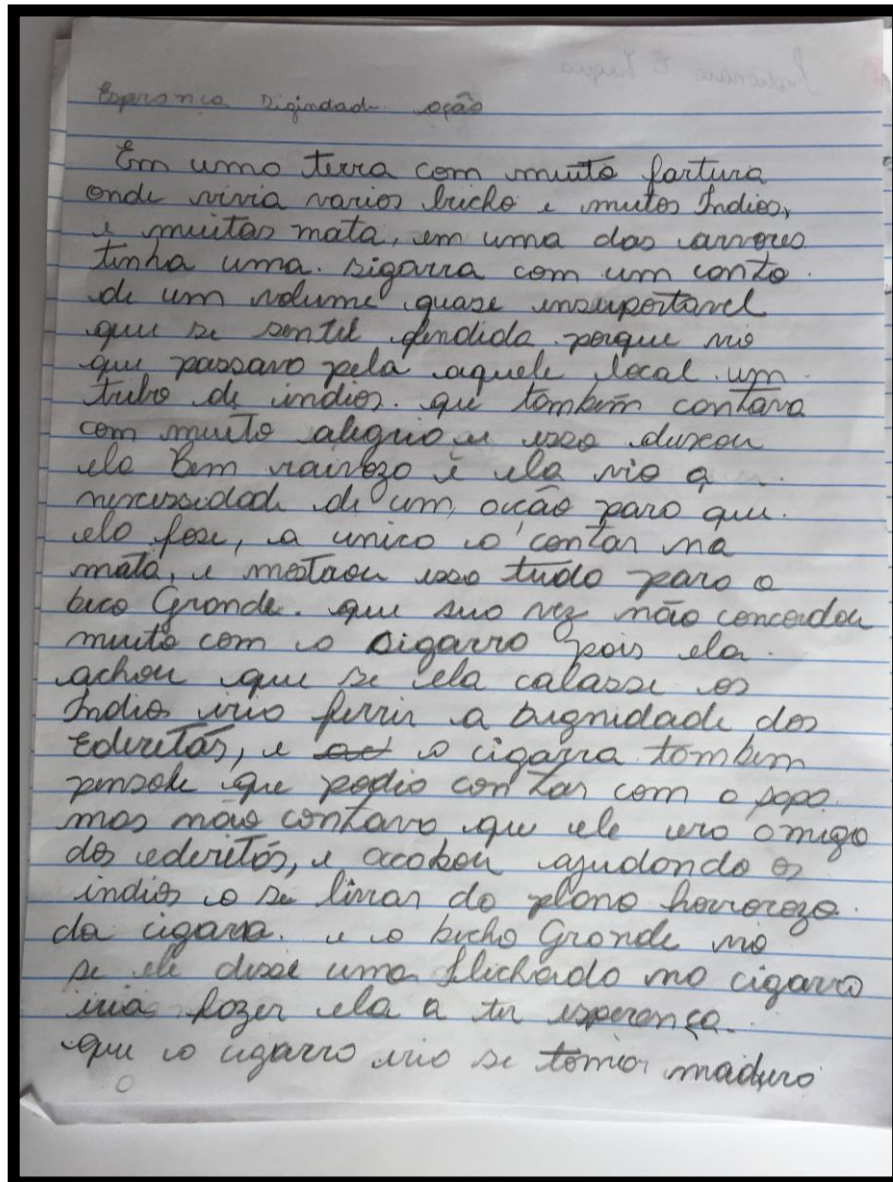 Esprança diginidade ação
Em uma terra com muito fartura
onde vivia varios bicho e muitos Indios,
e muitas mata, em uma das arvores
tinha uma. sigarra com um canto.
de um volume quase insuportavel
que se sentil ofendida porque vio
que passava pela aquele local um
tribo de indios. que também cantava
com muito alegria e isso deixou
ela Bem raivoza e ela vio a
nercessidade de um, acção para que.
ela fose, a unico a cantar na
mata, e mostrou isso tudo para o
bico Grande. que sua vez não concordou
muito com a sigarra pois ela.
achou que se ela calasse os
Indios iria ferrir a dignidade dos
Ederitás, e a cigarra tombem
pensole que podia contar com o sapo.
mas não contava que ele era amigo
dos ederitás, e acabou ajudando os
indios a se livrar do plano horrorozo.
da cigarra. e o bicho Grande vio
se ele desse uma flichada na cigarra
iria fazer ela a ter esperança.
que a cigarra iria se tornar maduro